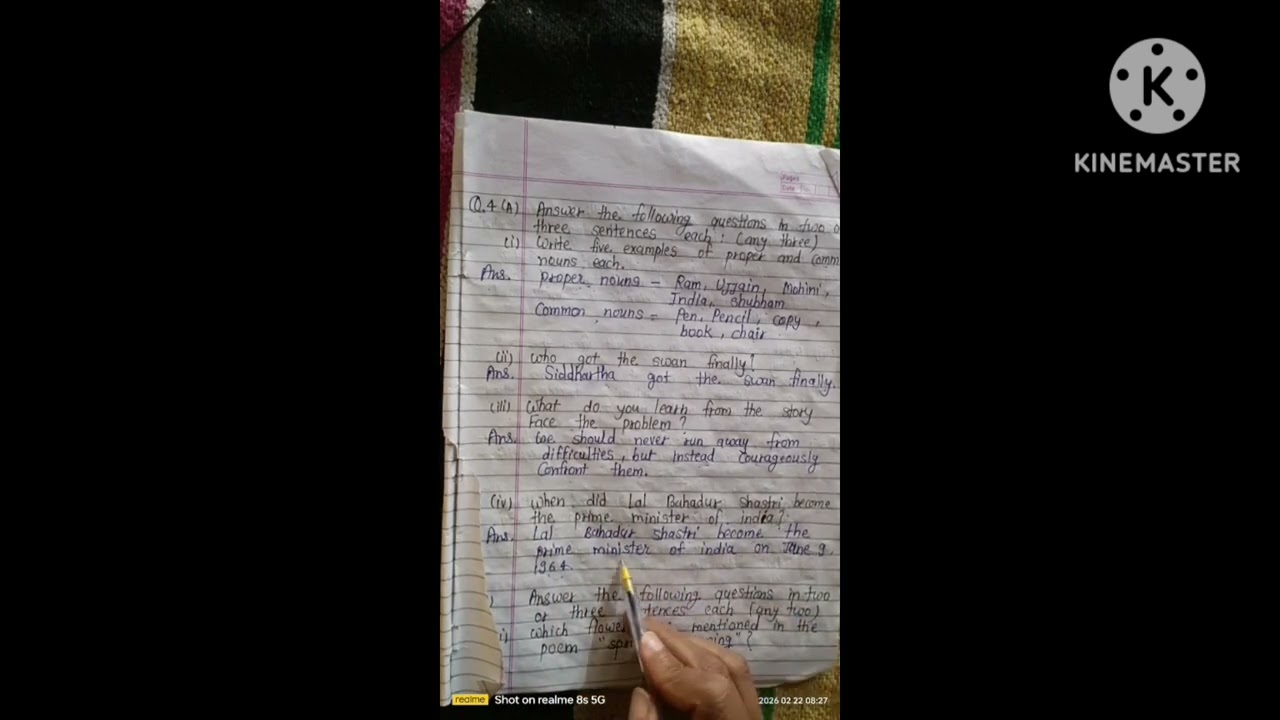 Page:
Date
Q.4 (A) Answer the following questions in two o
three sentences each: (any three)
(i) Write five examples of proper and comm
nouns each.
Ans. Proper nouns - Ram, Ujjain, Mohini,
India, Shubham
Common nouns = Pen, Pencil, copy,
book, chair
(ii) Who got the swan finally?
Ans. Siddhartha got the swan finally.
(iii) What do you learn from the story
Face the problem?
Ans. We should never run away from
difficulties, but instead courageously
confront them.
(iv) When did Lal Bahadur Shastri become
the prime minister of india?
Ans. Lal Bahadur Shastri become the
prime minister of india on June 9,
1964.
) Answer the following questions in two
or three tences each (any two)
i) which flowe is mentioned in the
poem "sp ing"?
K
KINEMASTER
realme Shot on realme 8s 5G
2026 02 22 08:27